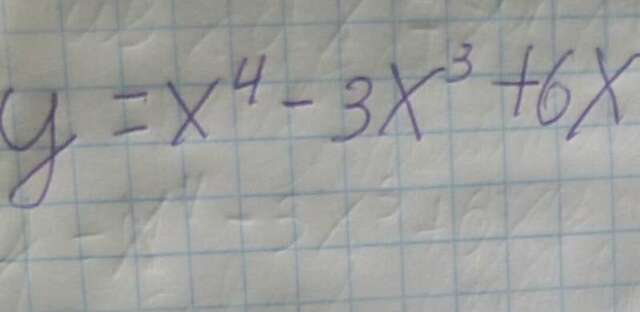 y = x⁴ - 3x³ + 6x